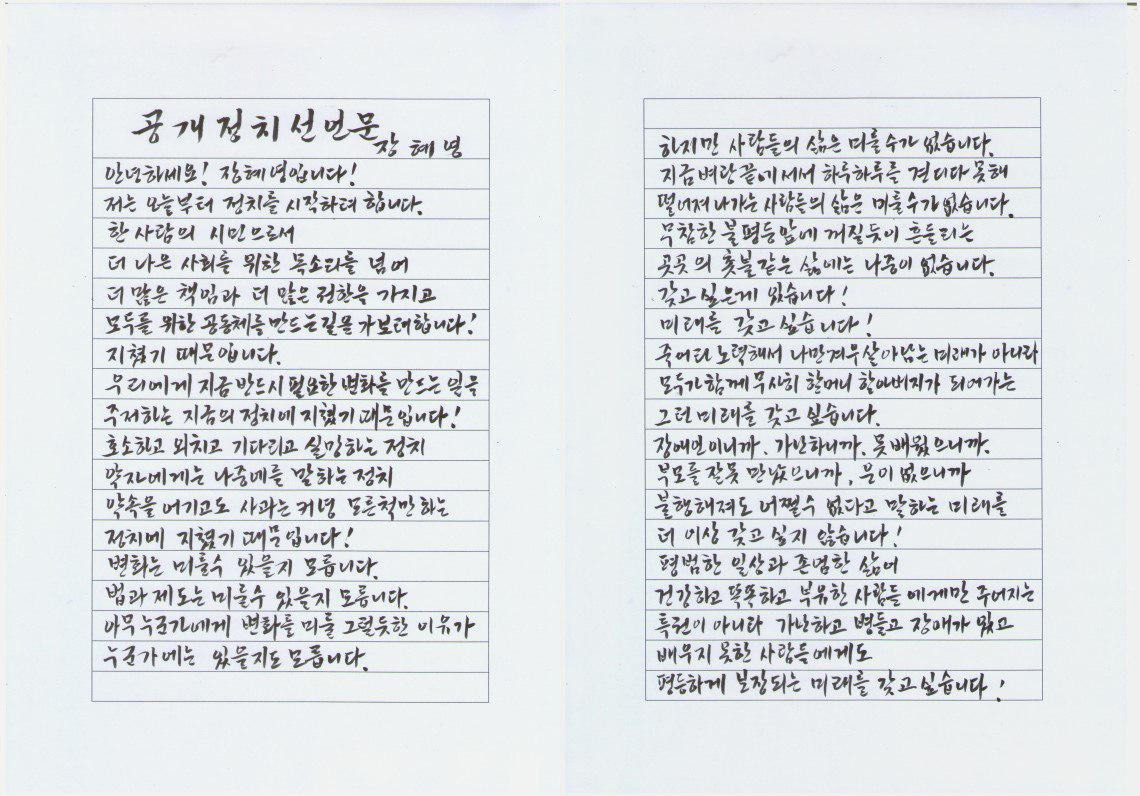 공개정치선언문
장혜영
안녕하세요! 장혜영입니다!
저는 오늘부터 정치를 시작하려 합니다.
한 사람의 시민으로서
더 나은 사회를 위한 목소리를 넘어
더 많은 책임과 더 많은 권한을 가지고
모두를 위한 공동체를 만드는 길을 가보려합니다!
지쳤기 때문입니다.
우리에게 지금 반드시 필요한 변화를 만드는 일을
주저하는 지금의 정치에 지쳤기 때문입니다!
호소하고 외치고 기다리고 실망하는 정치
약자에게는 나중에를 말하는 정치
약속을 어기고도 사과는 커녕 모른척만 하는
정치에 지쳤기 때문입니다!
변화는 미룰수 있을지 모릅니다.
법과 제도는 미룰수 있을지 모릅니다.
아무 누군가에게 변화를 미룰 그럴듯한 이유가
누군가에는 있을지도 모릅니다.
하지만 사람들의 삶은 미룰수가 없습니다.
지금 벼랑 끝에 서서 하루하루를 견디다 못해
떨어져 나가는 사람들의 삶은 미룰수가 없습니다.
무참한 불평등앞에 꺼질듯이 흔들리는
곳곳의 촛불같은 삶에는 나중이 없습니다.
갖고 싶은게 있습니다!
미래를 갖고 싶습니다!
죽어라 노력해서 나만 겨우 살아남는 미래가 아니라
모두가 함께 무사히 할머니 할아버지가 되어가는
그런 미래를 갖고 싶습니다.
장애인이니까, 가난하니까, 못 배웠으니까,
부모를 잘못 만났으니까, 운이 없으니까
불행해져도 어쩔수 없다고 말하는 미래를
더 이상 갖고 싶지 않습니다!
평범한 일상과 존엄한 삶이
건강하고 똑똑하고 부유한 사람들에게만 주어지는
특권이 아니라 가난하고 병들고 장애가 있고
배우지 못한 사람들에게도
평등하게 보장되는 미래를 갖고 싶습니다!